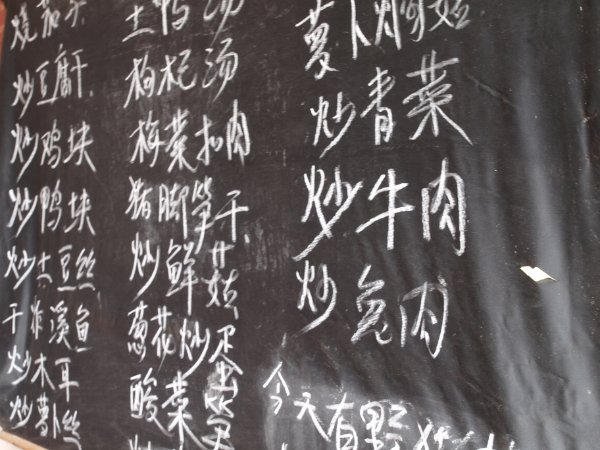 烧茄
炒豆腐干
炒鸡块
炒鸭块
炒土豆丝
干炸溪鱼
炒木耳
炒萝卜丝
土鸭汤
枸杞汤
梅菜扣肉
猪脚笋干
炒鲜菇
葱花炒蛋
酸菜笋
炒
萝卜菇
炒青菜
炒牛肉
炒兔肉
今天有野